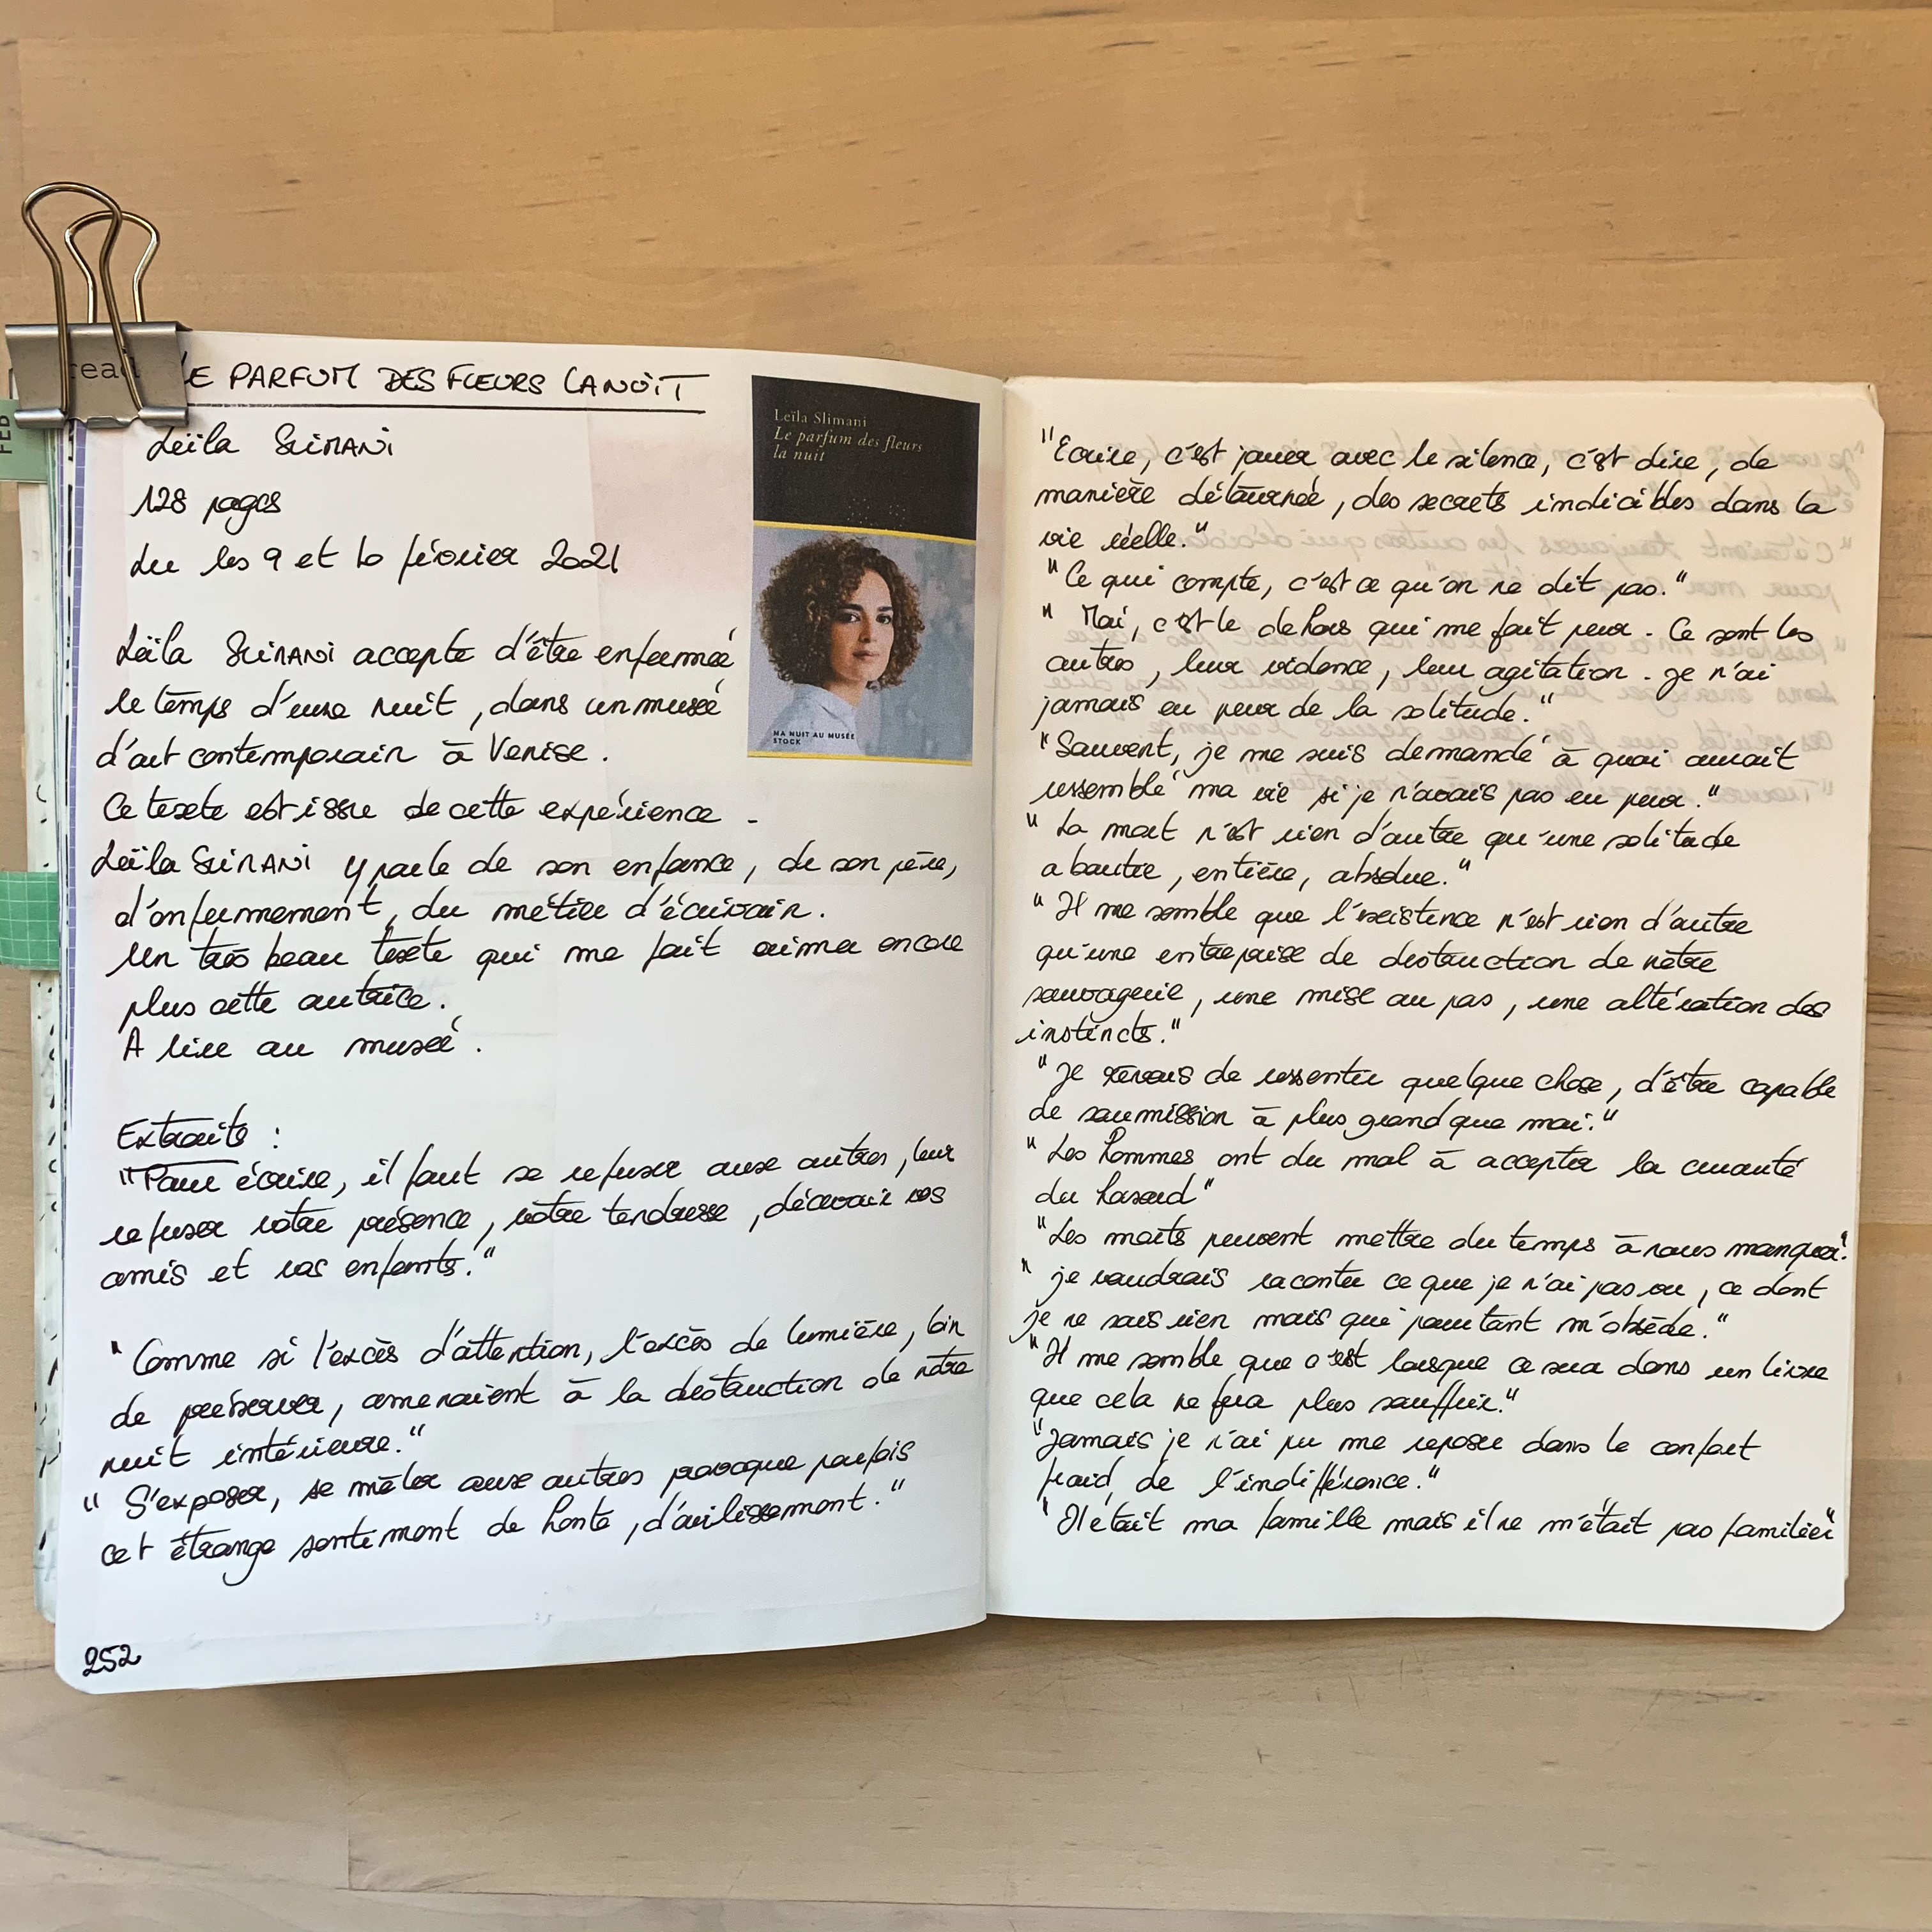 read
LE PARFUM DES FLEURS LA NUIT
Leïla SLIMANI
128 pages
Lu les 9 et 10 février 2021
Leïla SLIMANI accepte d'être enfermée
le temps d'une nuit, dans un musée
d'art contemporain à Venise.
Ce texte est issu de cette expérience.
Leïla SLIMANI y parle de son enfance, de son père,
d'enfermement, du métier d'écrivain.
Un très beau texte qui me fait aimer encore
plus cette autrice.
A lire au musée.
Extraits :
"Pour écrire, il faut se refuser aux autres, leur
refuser votre présence, votre tendresse, décevoir vos
amis et vos enfants."
"Comme si l'excès d'attention, l'excès de lumière, loin
de préserver, amenaient à la destruction de notre
nuit intérieure."
"S'exposer, se mêler aux autres provoque parfois
cet étrange sentiment de honte, d'avilissement."
252
FEB
Leïla Slimani
Le parfum des fleurs
la nuit
MA NUIT AU MUSÉE
STOCK
"Ecrire, c'est jouer avec le silence, c'est dire, de
manière détournée, des secrets indicibles dans la
vie réelle."
"Ce qui compte, c'est ce qu'on ne dit pas."
"Moi, c'est le dehors qui me fait peur. Ce sont les
autres, leur violence, leur agitation. Je n'ai
jamais eu peur de la solitude."
"Souvent, je me suis demandé à quoi aurait
ressemblé ma vie si je n'avais pas eu peur."
"La mort n'est rien d'autre qu'une solitude
aboutie, entière, absolue."
"Il me semble que l'existence n'est rien d'autre
qu'une entreprise de destruction de notre
sauvagerie, une mise au pas, une altération des
instincts."
"Je rêvais de ressentir quelque chose, d'être capable
de soumission à plus grand que moi."
"Les hommes ont du mal à accepter la cruauté
du hasard"
"Les morts peuvent mettre du temps à nous manquer."
"je voudrais raconter ce que je n'ai pas vu, ce dont
je ne sais rien mais qui pourtant m'obsède."
"Il me semble que c'est lorsque ce sera dans un livre
que cela ne fera plus souffrir."
"Jamais je n'ai pu me reposer dans le confort
froid de l'indifférence."
"Il était ma famille mais il ne m'était pas familier"